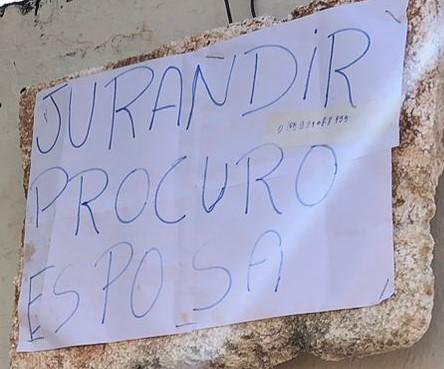 JURANDIR
PROCURO
ESPOSA